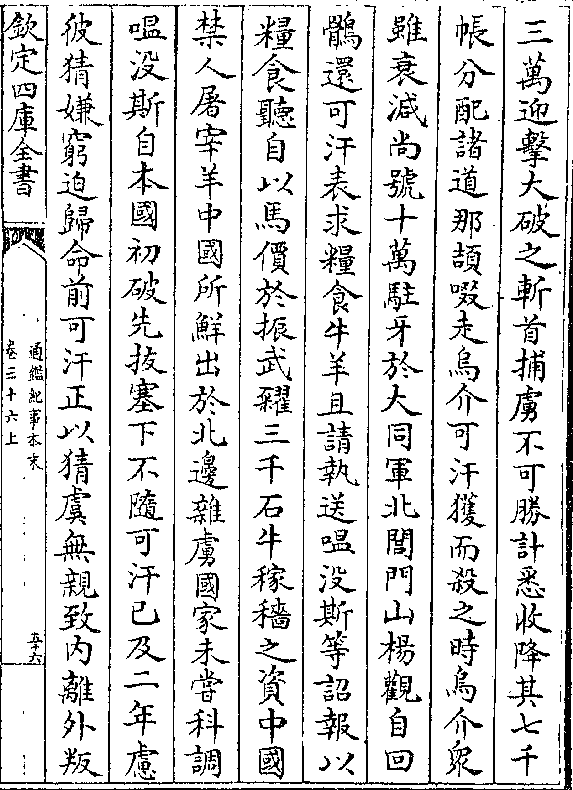 三萬迎擊大破之斬首捕虜不可勝計悉收降其七千
帳分配諸道那頡啜走烏介可汗獲而殺之時烏介衆
雖衰減尚號十萬駐牙於大同軍北閭門山楊觀自回
鶻還可汗表求糧食牛羊且請執送嗢没斯等詔報以
糧食聽自以馬價於振武糴三千石牛稼穡之資中國
禁人屠宰羊中國所鮮出於北邊雜虜國家未嘗科調
嗢没斯自本國初破先投塞下不隨可汗已及二年慮
彼猜嫌窮迫歸命前可汗正以猜虞無親致内離外叛
欽定四庫全書
通鑑紀事本末
卷三十六上
五十六